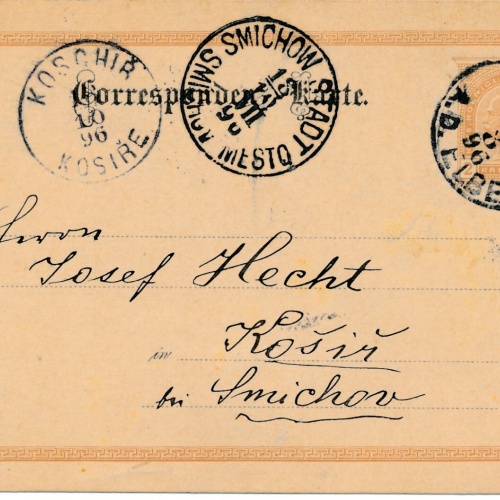 KOSCHIŘ
10
96
KOŠIŘE
SMICHOW STADT
96
MĚSTO
Correspondenz-Karte.
A.D. ELBE
96
Herrn
Josef Hecht
in Košíř
bei Smichov